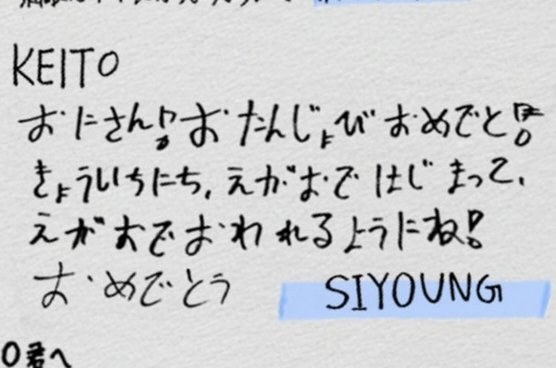 KEITO
おにさん!おたんじょびおめでと!
きょういちにち、えがおではじまって、
えがおでおわれるようにね!
おめでとう SIYOUNG
O君へ